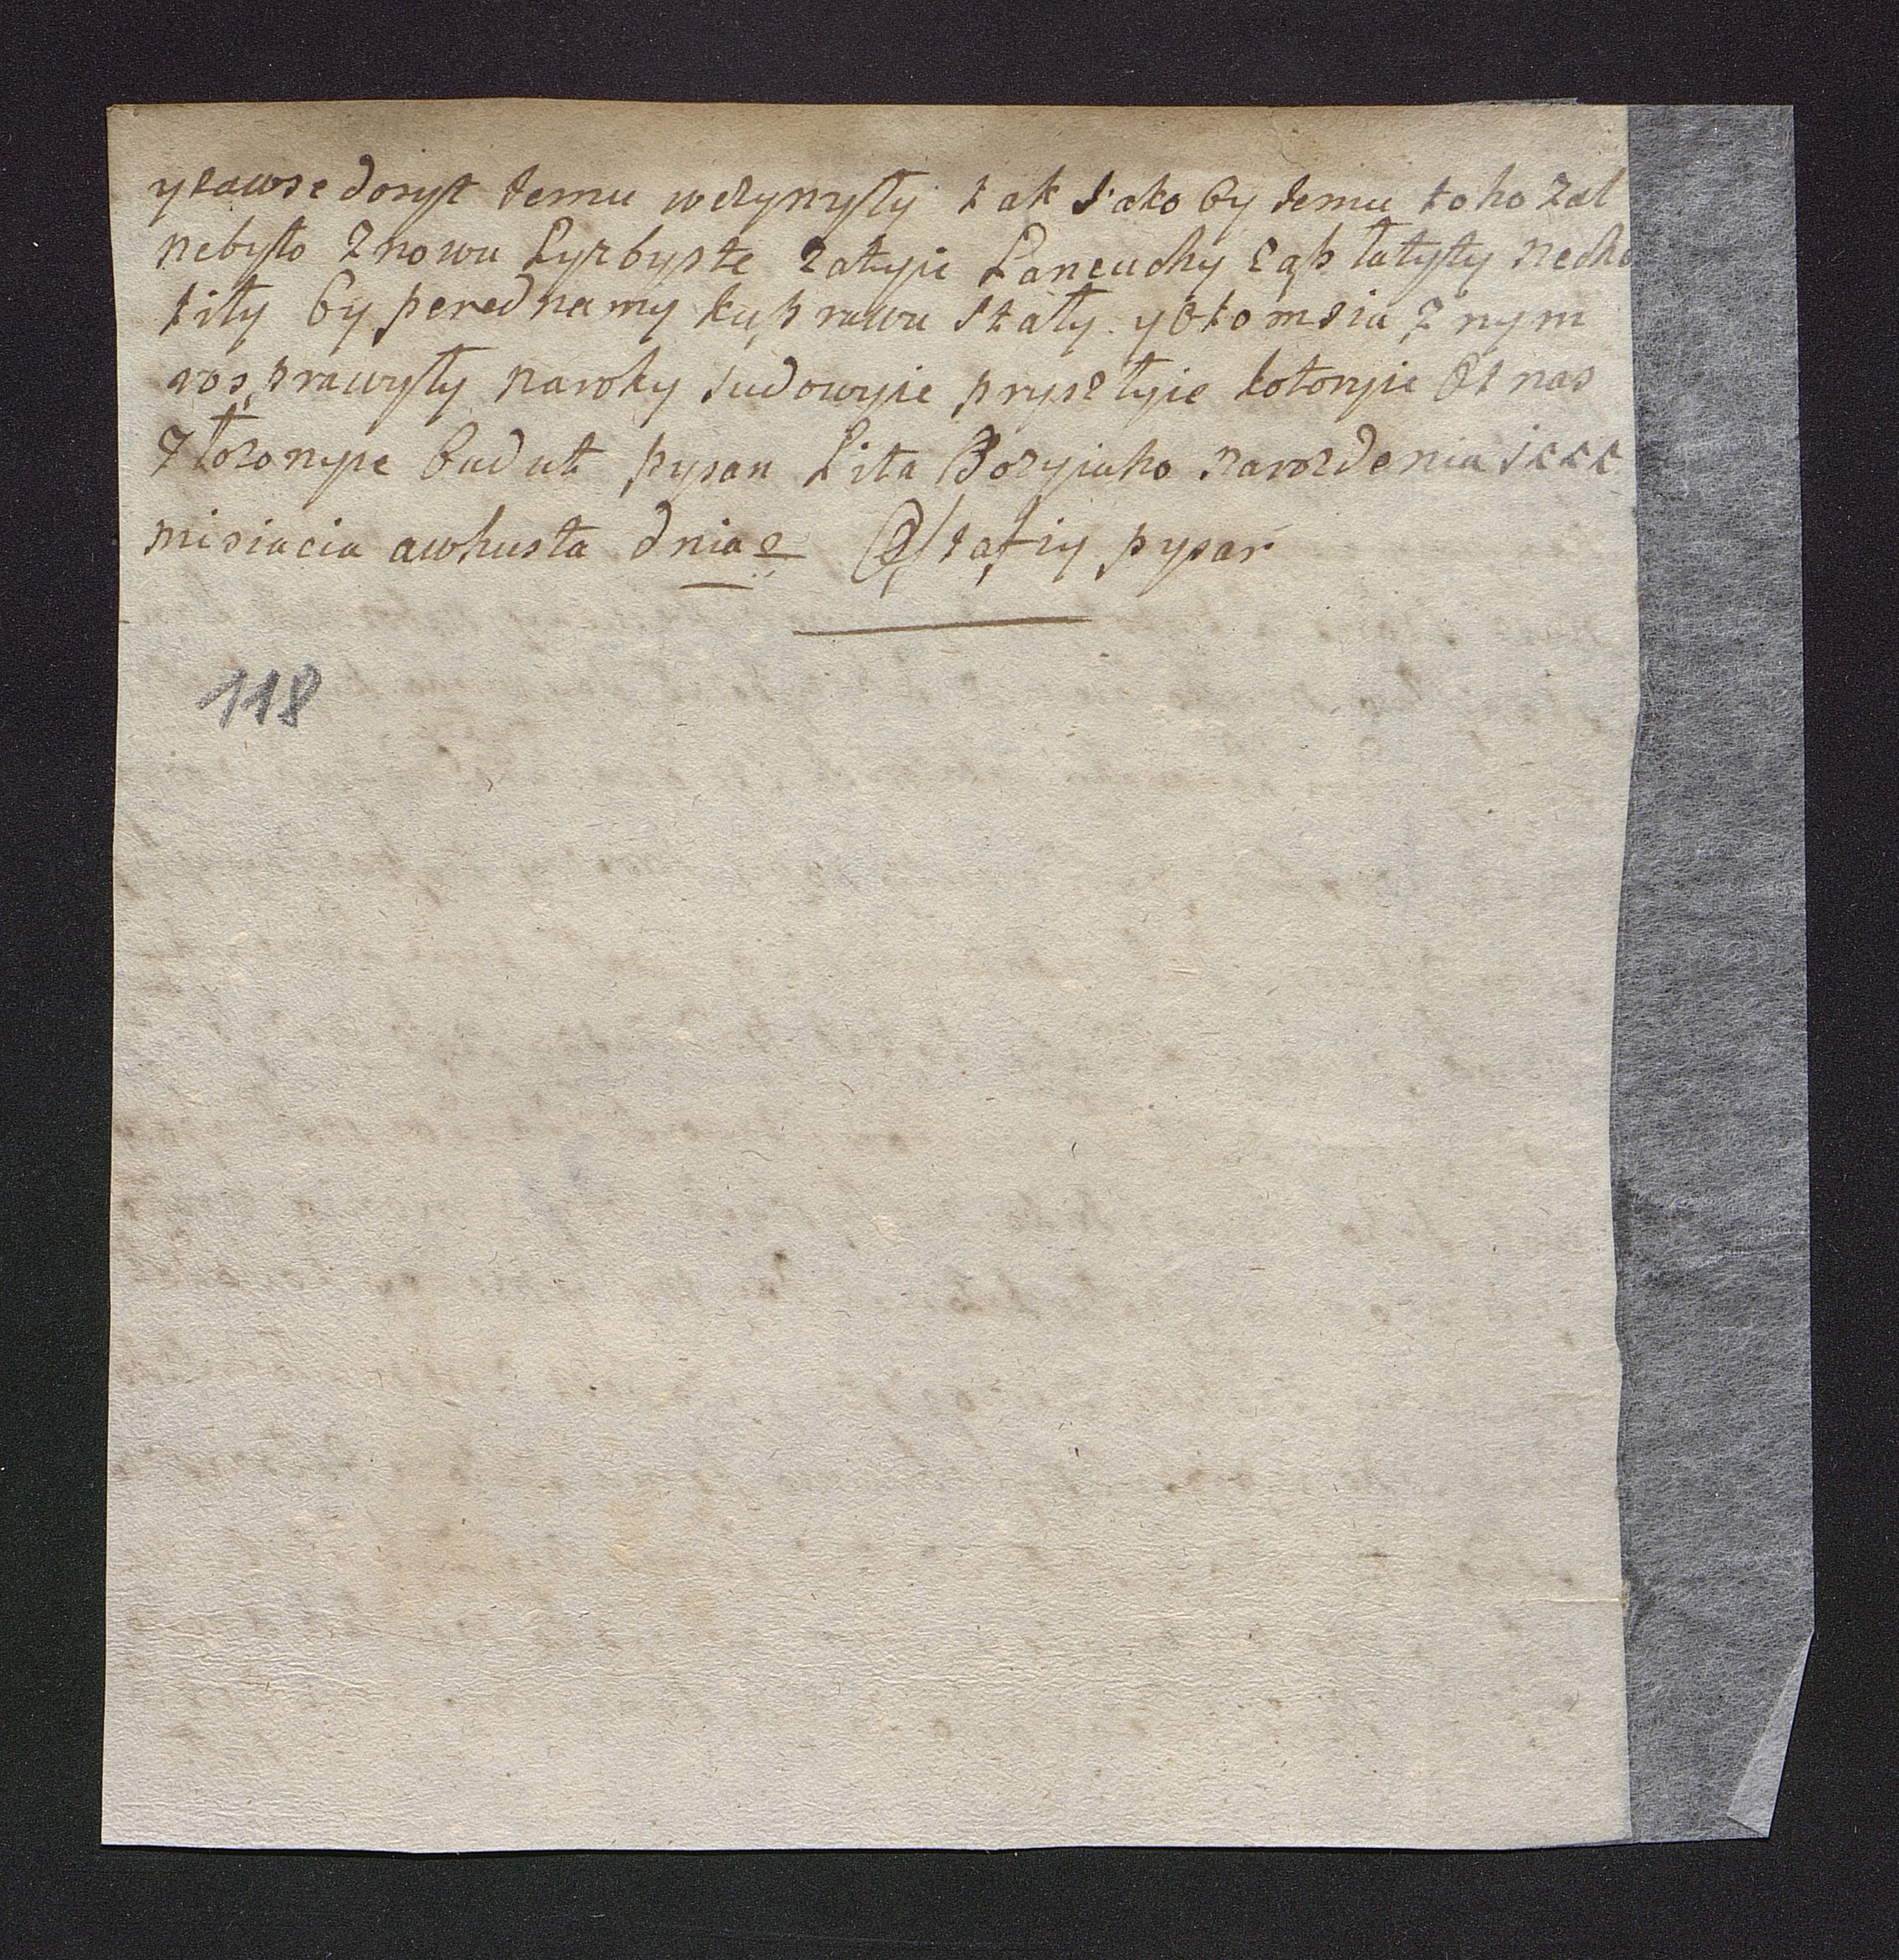 yzawse dosyt temu wczynyły tak jako by temu toho żal
nebyło znowu Lyczbyste załyie Lancuchy zapłatyły neche
tiły by perednamy ku prawu stały y o tomsia z nym
rosprawyły na roky sudowyie pryszłyie kotoryie Ot nas
złożonyie budut pysan Lita Bożyiaho narożdenia
misiacia awhusta dnia Ostafiy pysar
118